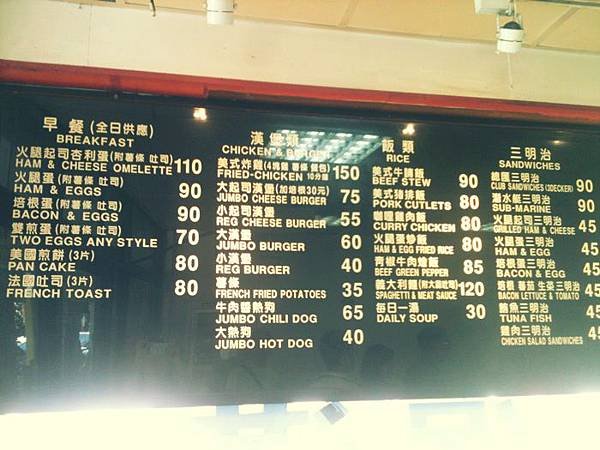 早餐(全日供應)
BREAKFAST
火腿起司杏利蛋(附薯條 吐司) 110
HAM & CHEESE OMELETTE
火腿蛋(附薯條 吐司) 90
HAM & EGGS
培根蛋(附薯條 吐司) 90
BACON & EGGS
雙煎蛋(附薯條 吐司) 70
TWO EGGS ANY STYLE
美國煎餅(3片) 80
PAN CAKE
法國吐司(3片) 80
FRENCH TOAST
漢堡類
CHICKEN & BURGER
美式炸雞 150
FRIED-CHICKEN 10分鐘
大起司漢堡(加培根30元) 75
JUMBO CHEESE BURGER
小起司漢堡 55
REG CHEESE BURGER
大漢堡 60
JUMBO BURGER
小漢堡 40
REG BURGER
薯條 35
FRENCH FRIED POTATOES
牛肉醬熱狗 65
JUMBO CHILI DOG
大熱狗 40
JUMBO HOT DOG
飯類
RICE
美式牛腩飯 90
BEEF STEW
美式豬排飯 80
PORK CUTLETS
咖哩雞肉飯 80
CURRY CHICKEN
火腿蛋炒飯 80
HAM & EGG FRIED RICE
青椒牛肉燴飯 85
BEEF GREEN PEPPER
義大利麵(附大蒜吐司) 120
SPAGHETTI & MEAT SAUCE
每日一湯 30
DAILY SOUP
三明治
SANDWICHES
總匯三明治 90
CLUB SANDWICHES (3DECKER)
潛水艇三明治 90
SUB-MARINE
火腿起司三明治 45
GRILLED HAM & CHEESE
火腿蛋三明治 45
HAM & EGG
培根蛋三明治 45
BACON & EGG
培根 蕃茄 生菜三明治 45
BACON LETTUCE & TOMATO
鮪魚三明治 45
TUNA FISH
雞肉三明治 45
CHICKEN SALAD SANDWICHES